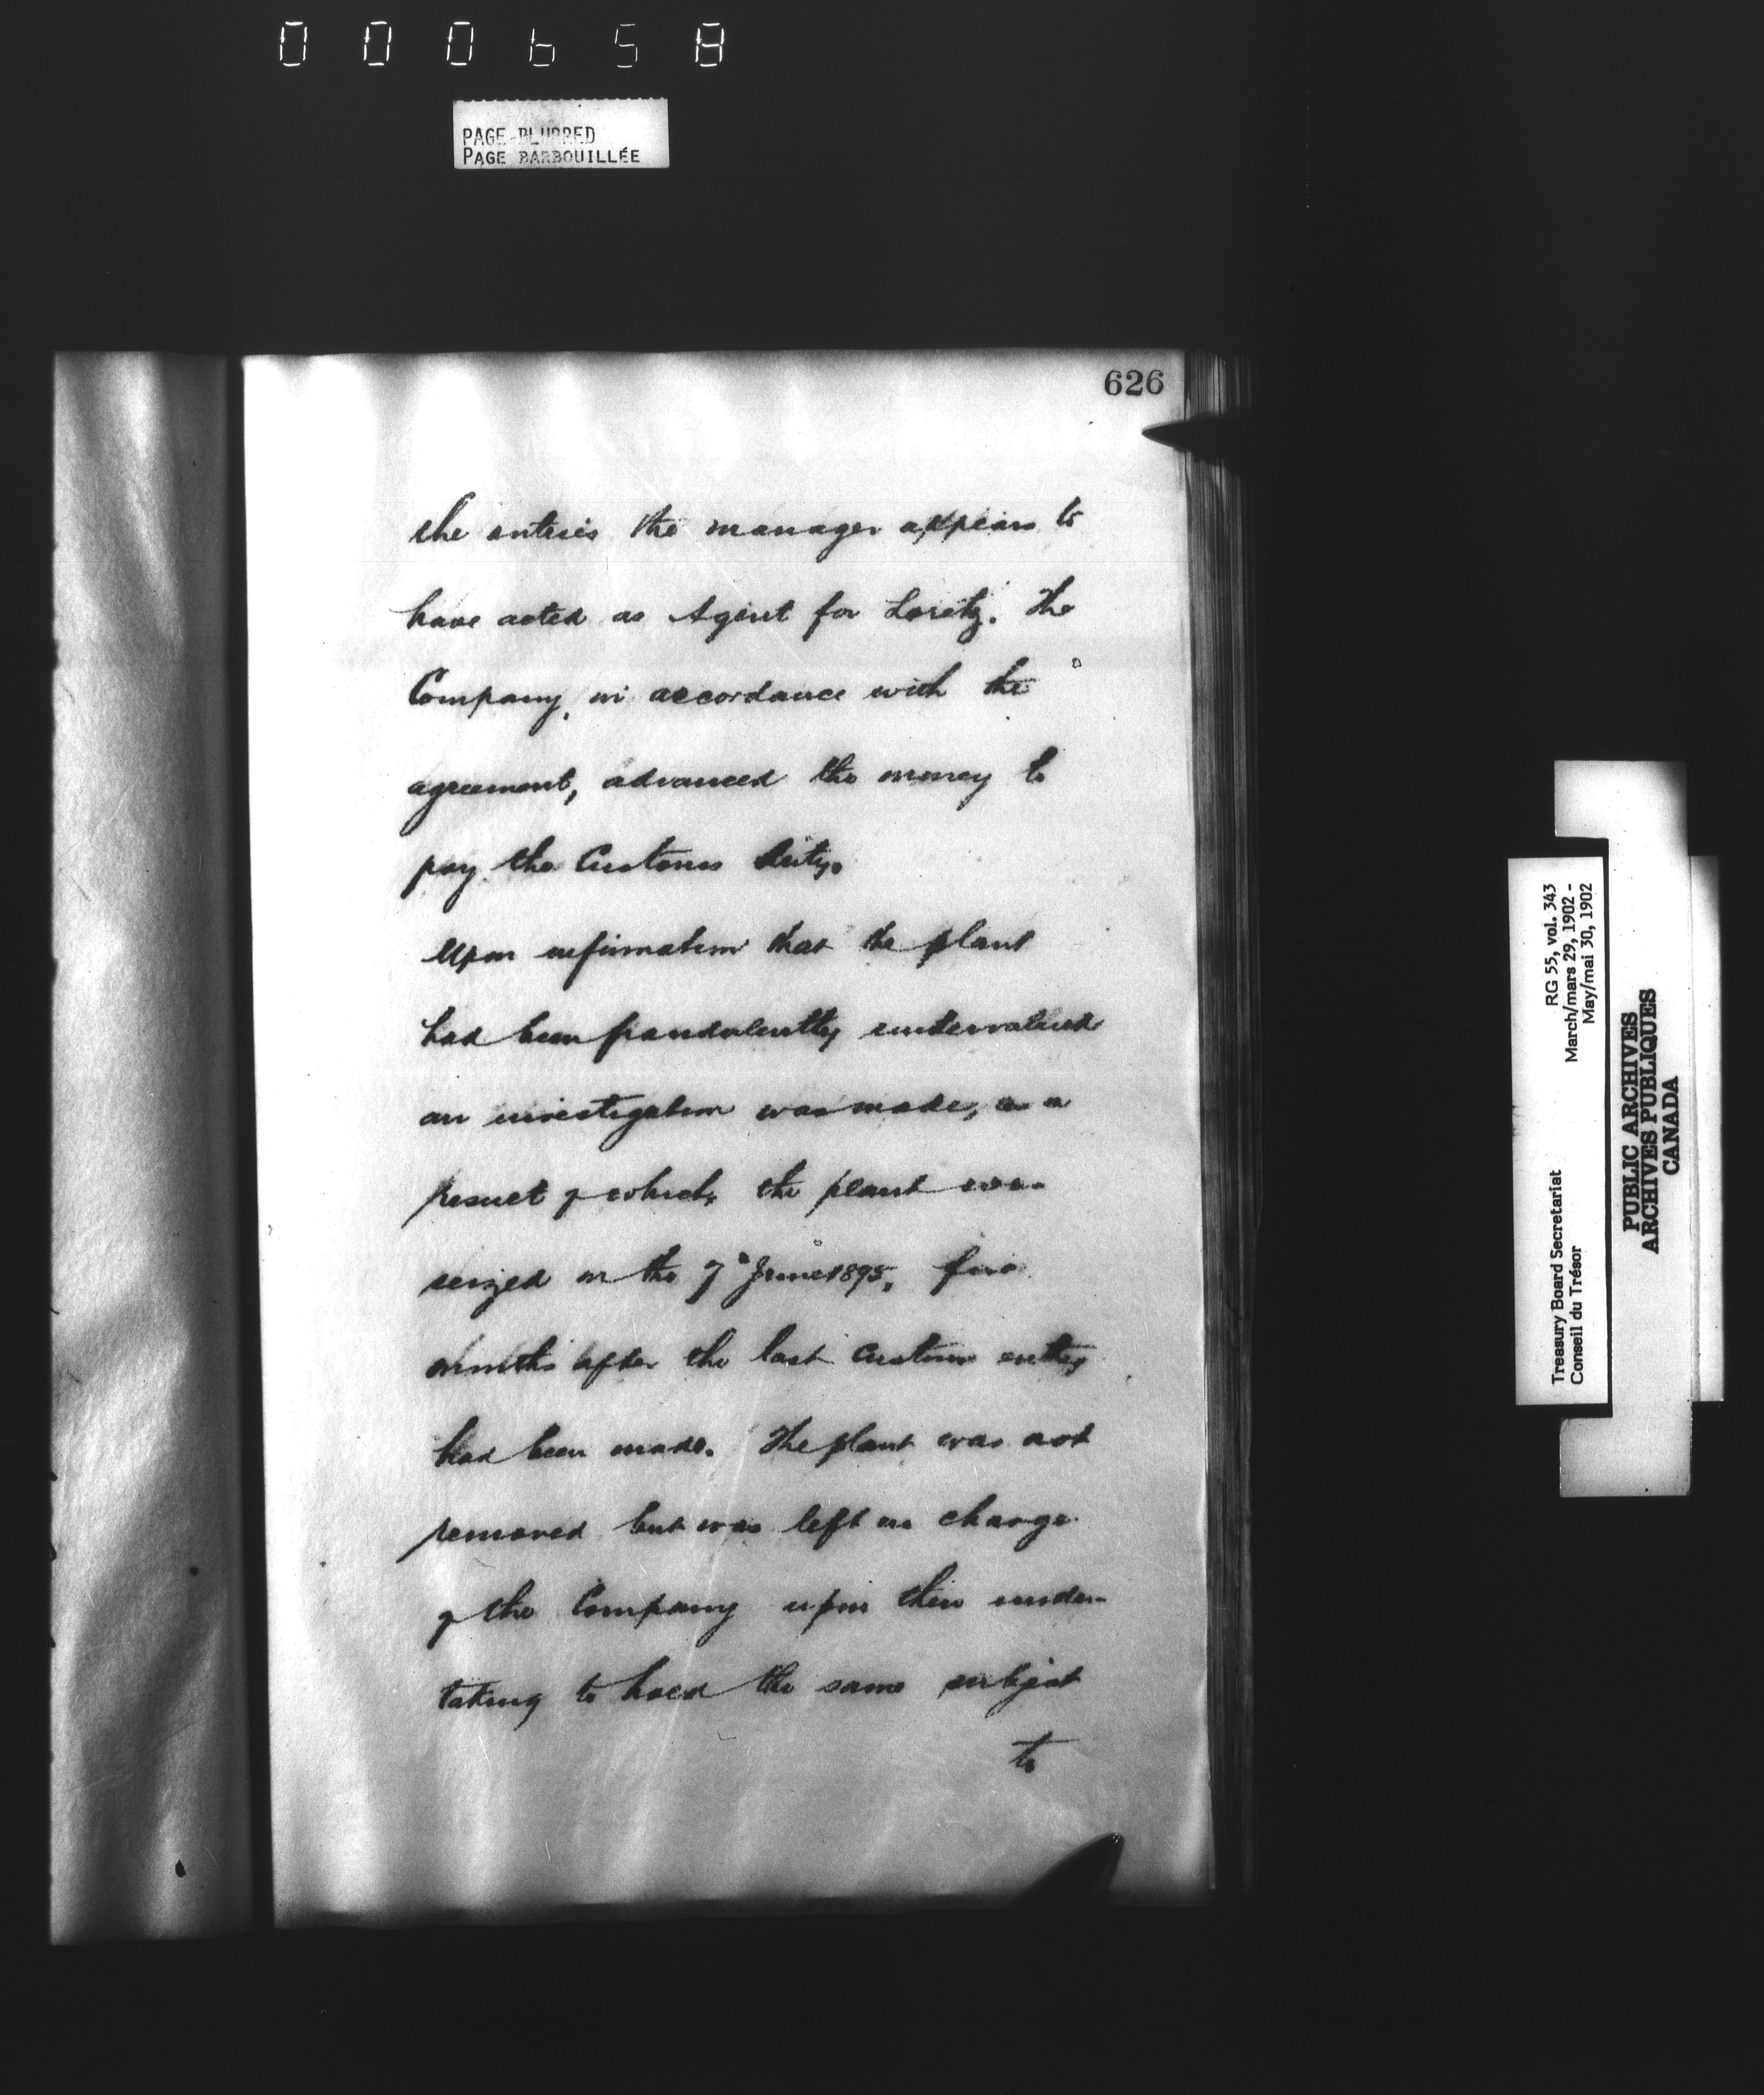 000658
PAGE BLURRED
PAGE BARBOUILLÉE
626
the enteries the manager appears to
have acted as Agent for Loretz. The
Company, in accordance with the
agreement, advanced the money to
pay the Customs duty.
Upon information that the plant
had been fraudulently undervalued
an investigation was made, as a
result of which, the plant was
seized on the 7th June 1895, five
months after the last Customs entry
had been made. The plant was not
removed but was left in charge
of the Company upon their under-
taking to hold the same subject
to
RG 55, vol. 343
March/mars 29, 1902 -
May/mai 30, 1902
Treasury Board Secretariat
Conseil du Trésor
PUBLIC ARCHIVES
ARCHIVES PUBLIQUES
CANADA